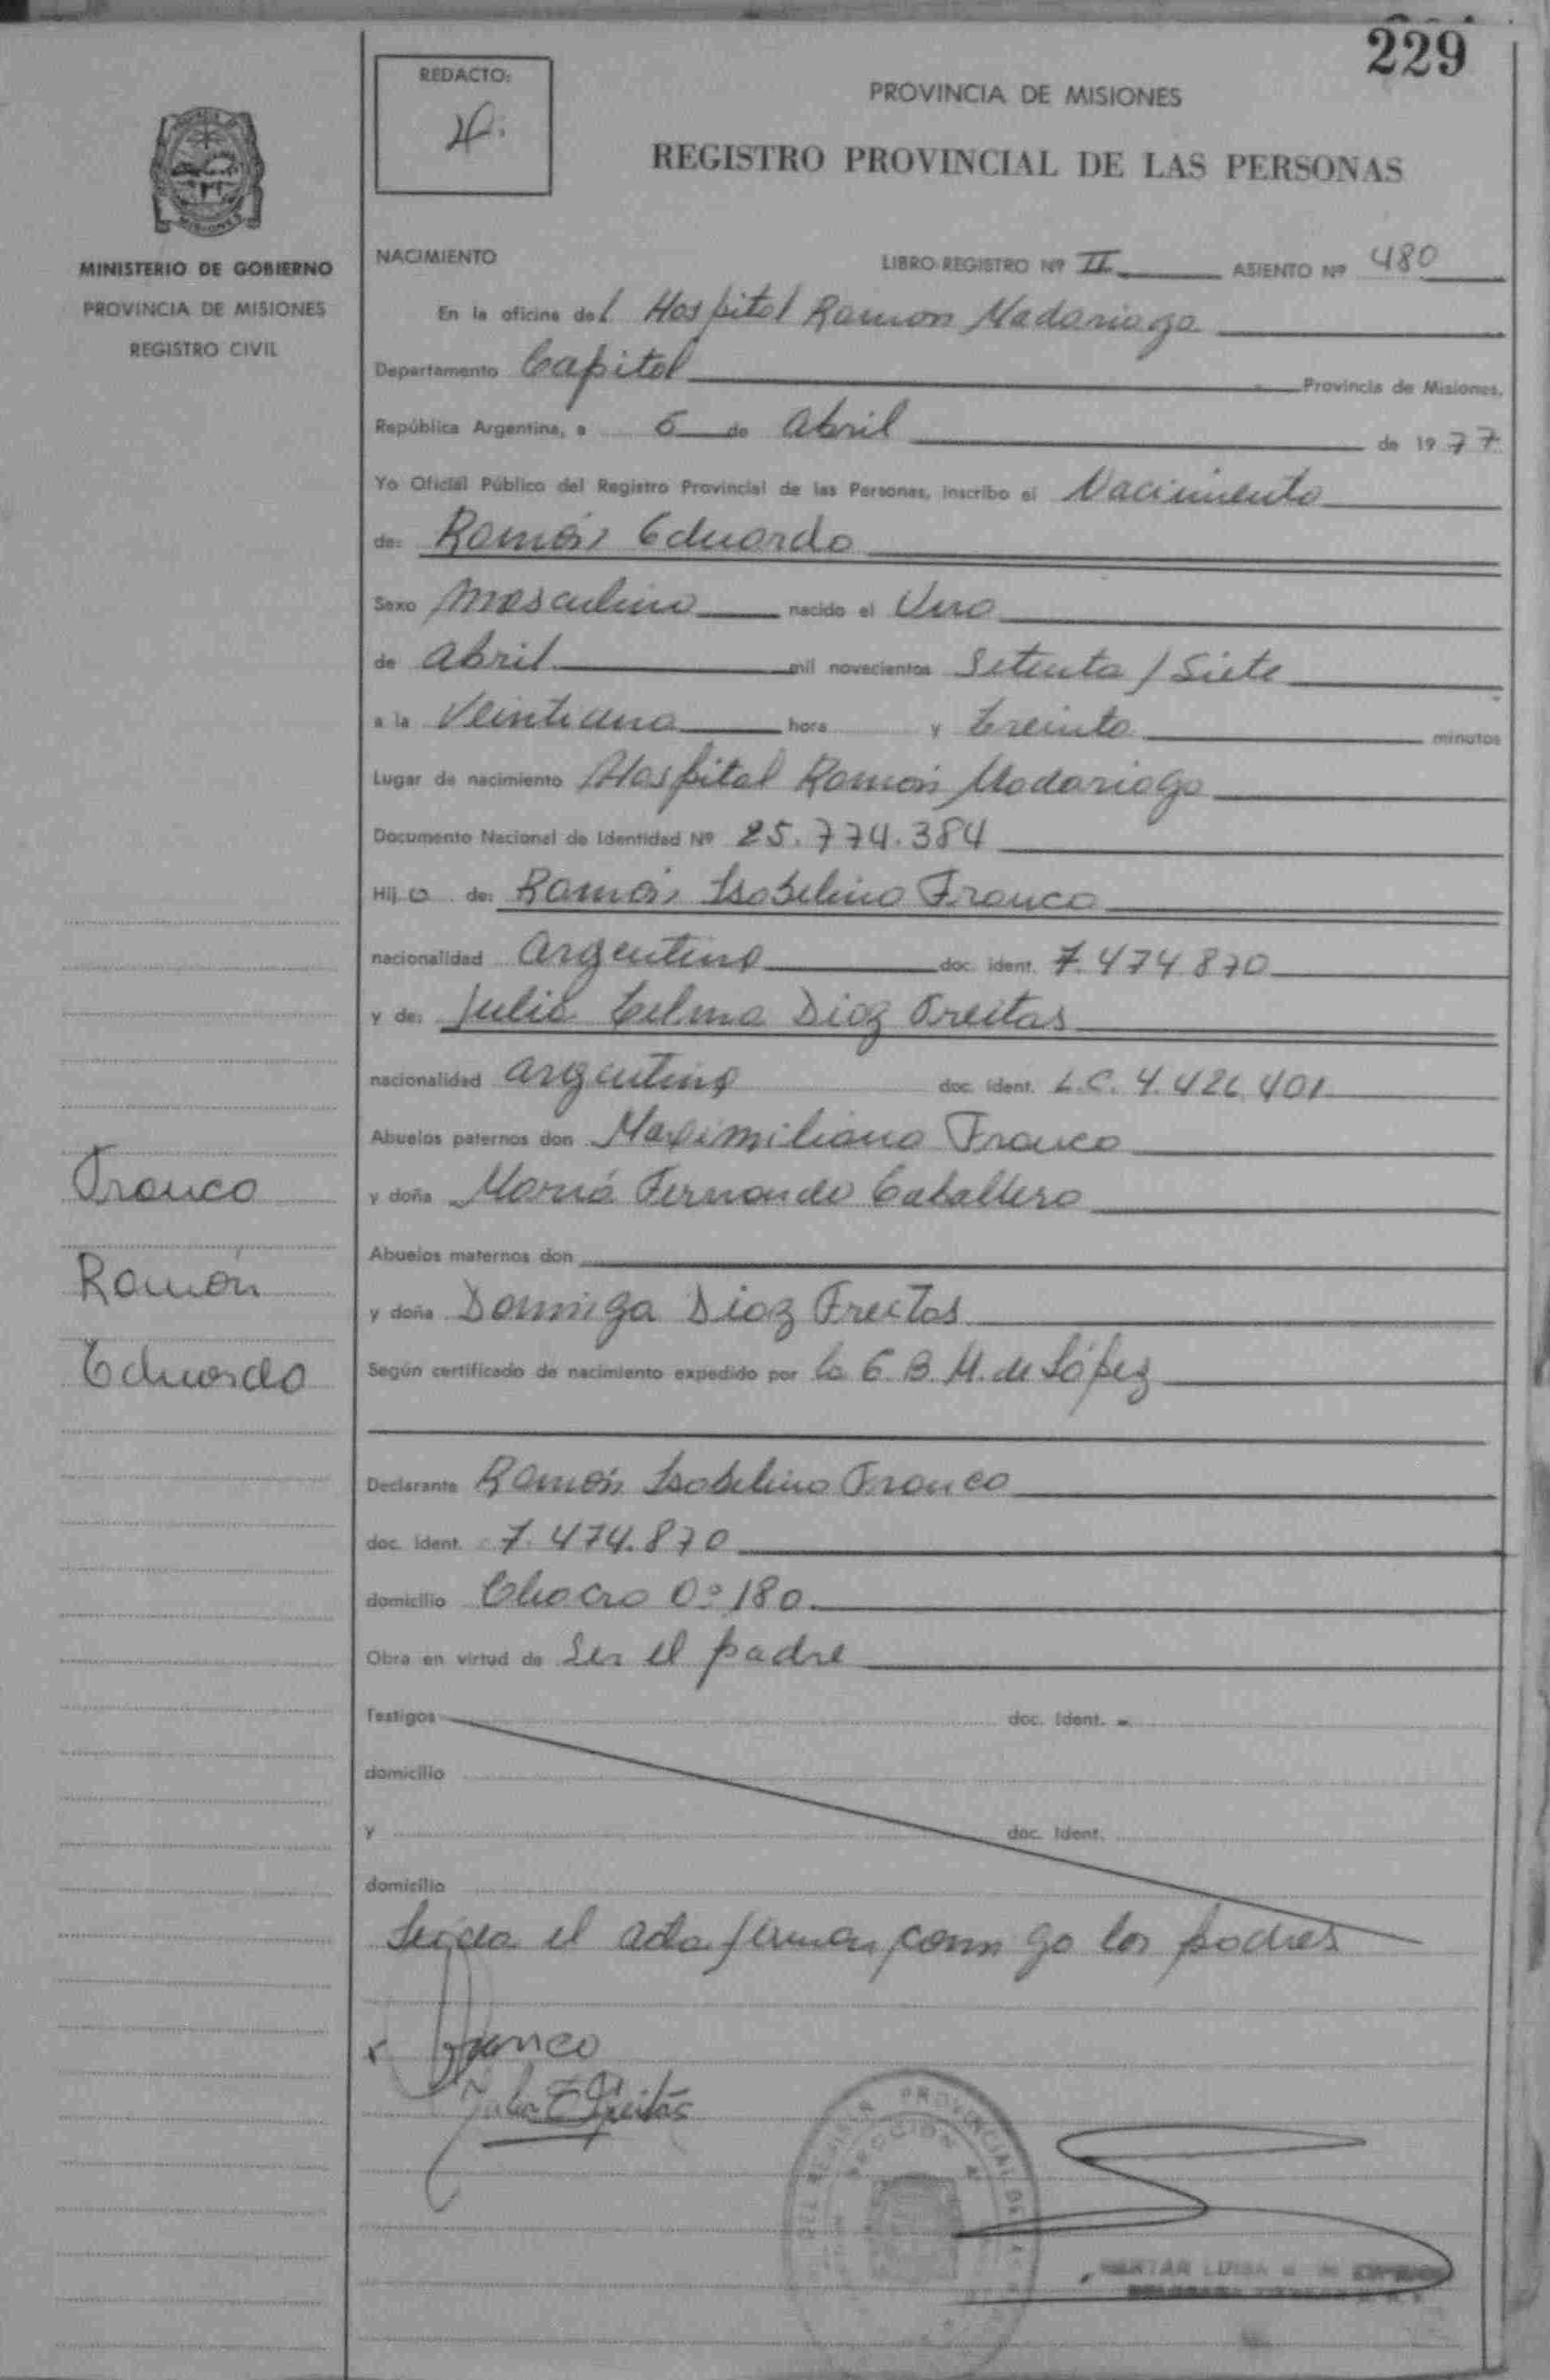 229
REDACTO:
PROVINCIA DE MISIONES
REGISTRO PROVINCIAL DE LAS PERSONAS
MISIONES
MINISTERIO DE GOBIERNO
PROVINCIA DE MISIONES
REGISTRO CIVIL
NACIMIENTO LIBRO REGISTRO Nº II ASIENTO Nº 480
En la oficina del Hospital Ramon Madariaga
Departamento Capital Provincia de Misiones,
República Argentina, a 6 de abril de 1977
Yo Oficial Público del Registro Provincial de las Personas, inscribo el Nacimiento
de: Ramón Eduardo
Sexo masculino nacido el Uno
de abril mil novecientos Setenta / Siete
a la Veintiuna hora y treinta minutos
Lugar de nacimiento Hospital Ramón Madariaga
Documento Nacional de Identidad Nº 25.774.384
Hijo de: Ramón Isabelino Franco
nacionalidad argentina doc. ident. 7.474.870
y de: Julia Celma Diaz Freitas
nacionalidad argentina doc. ident. L.C. 4.426.401
Abuelos paternos don Maximiliano Franco
y doña María Fernanda Caballero
Abuelos maternos don
y doña Dominga Diaz Freitas
Según certificado de nacimiento expedido por la E. B. M. de López
Declarante Ramón Isabelino Franco
doc. ident. 7.474.870
domicilio Chacra 0º 180
Obra en virtud de Ser el padre
Testigos doc. ident.
domicilio
y doc. ident.
domicilio
Leída el acta firman conmigo los padres
Franco
Julia Freitas
Franco
Ramón
Eduardo
PROVINCIAL DE
SECCION